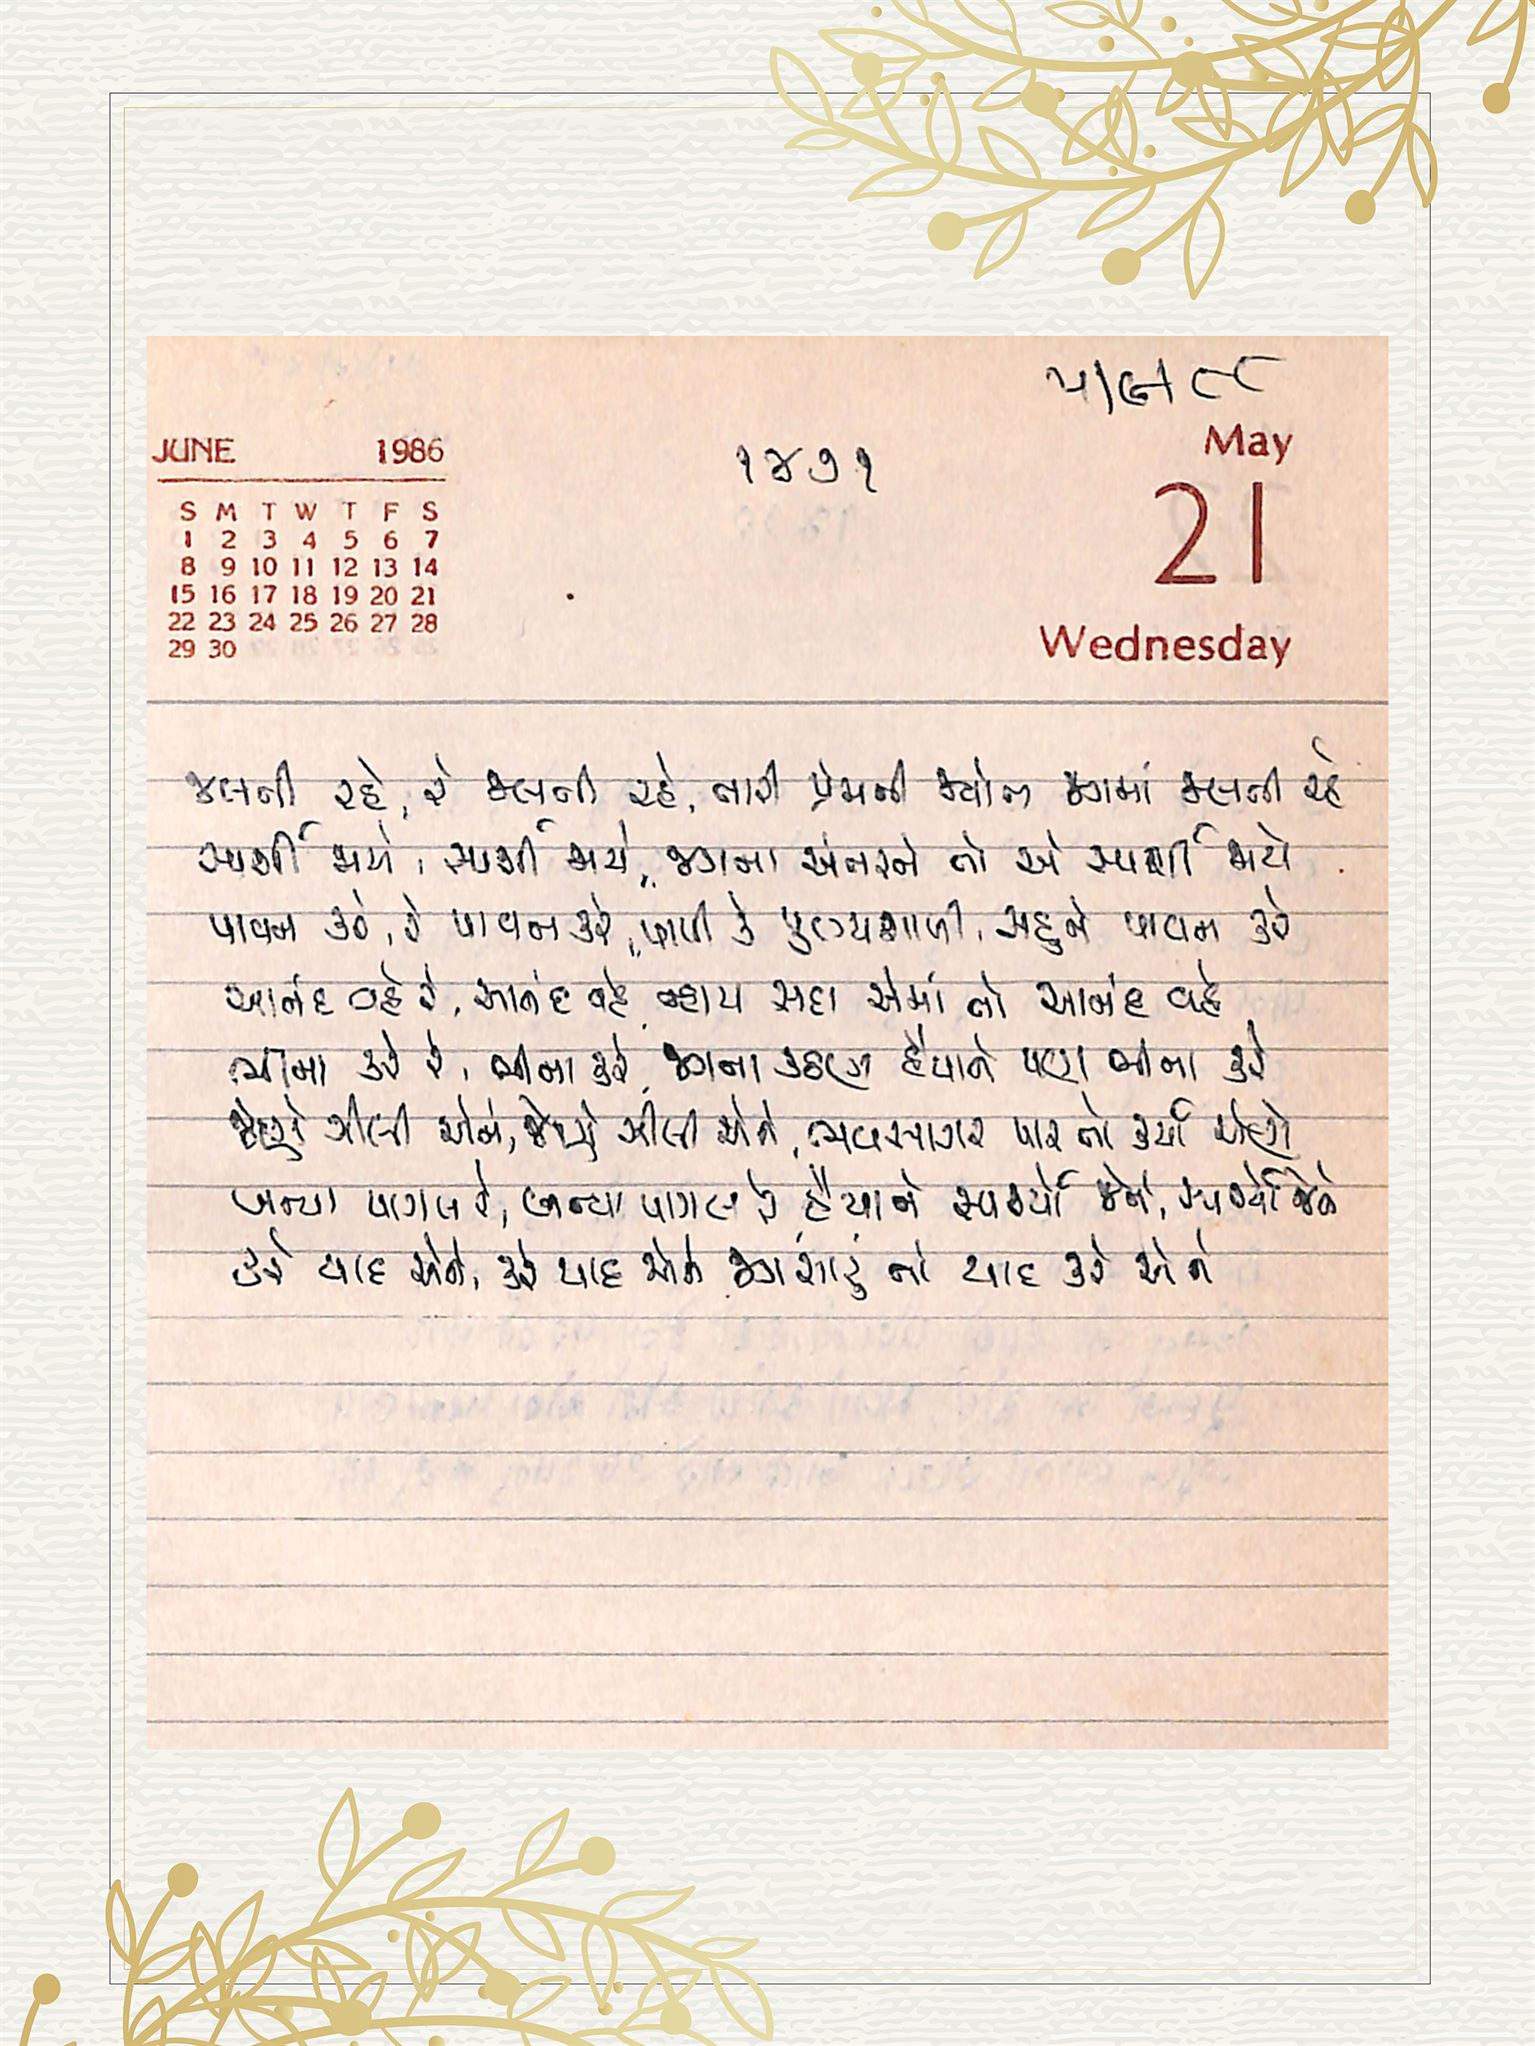 ૫/૯/૮૮
JUNE 1986
૧૪૭૧
May
21
Wednesday
S M T W T F S
1 2 3 4 5 6 7
8 9 10 11 12 13 14
15 16 17 18 19 20 21
22 23 24 25 26 27 28
29 30
જલતી રહે, રે જલતી રહે, તારી પ્રેમની જ્યોત જગમાં જલતી રહે
સ્પર્શી જાયે, સ્પર્શી જાયે, જગના અંતરને તો એ સ્પર્શી જાયે
પાવન કરે, રે પાવન કરે, પાપી કે પુણ્યશાળી, સહુને પાવન કરે
આનંદ વહે રે, આનંદ વહે, ન્હાય સદા એમાં તો આનંદ વહે
ભીના કરે રે, ભીના કરે, જગના કઠણ હૈયાને પણ ભીના કરે
જેણે ઝીલી એને, જેણે ઝીલી એને, ભવસાગર પાર તો કર્યા એણે
બન્યા પાગલ રે, બન્યા પાગલ રે, હૈયાને સ્પર્શ્યો જેને, સ્પર્શ્યો જેને
કરે યાદ એને, કરે યાદ એને જગ સારું તો યાદ કરે એને